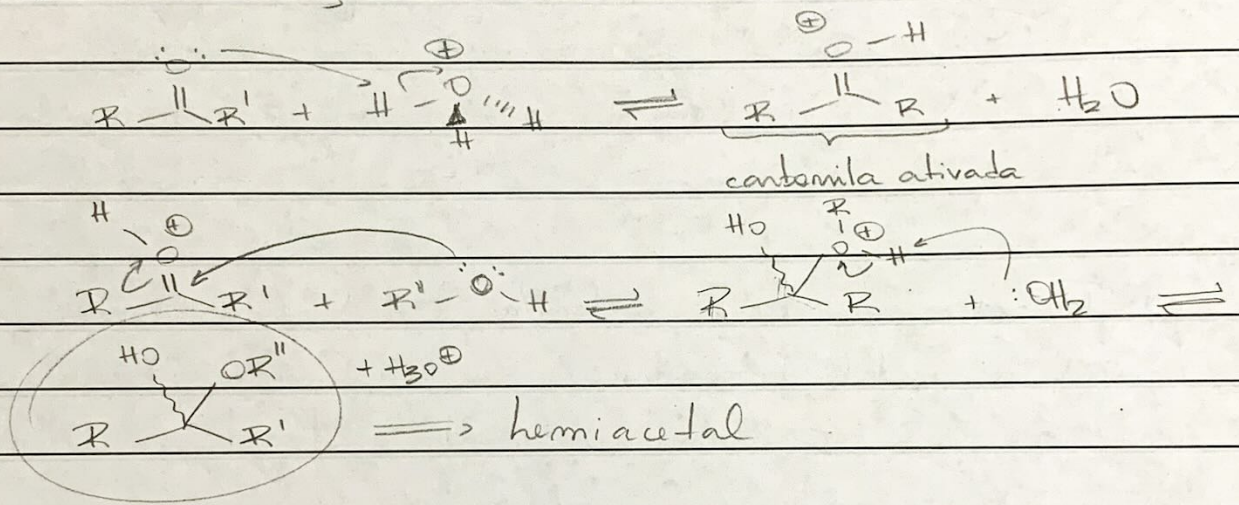 ⊕ ⊕ O — H
:O: O
R R' + H H ⇌ R R + H₂O
H
carbonila ativada
H ⊕ HO R ⊕
O O H
R R' + R'' — :O: H ⇌ R R + :OH₂ ⇌
HO OR'' + H₃O⊕
R R' ⟹ hemiacetal